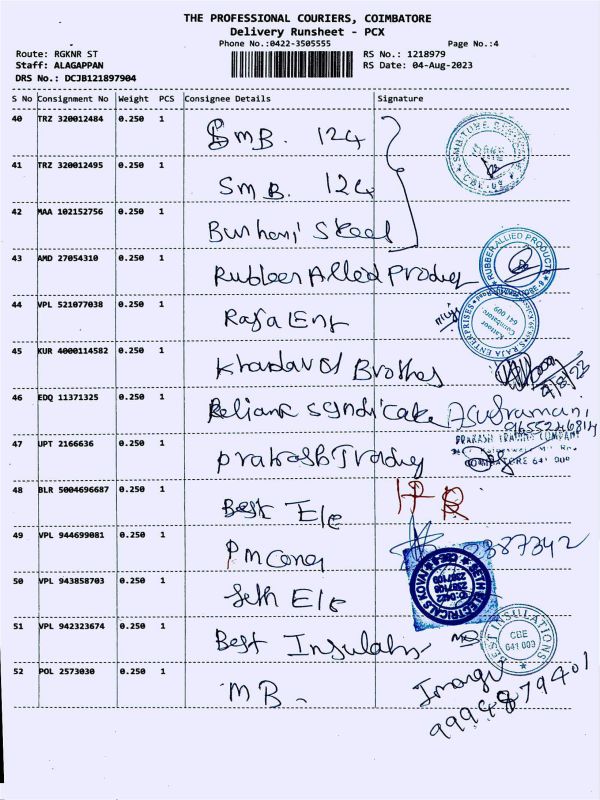 THE PROFESSIONAL COURIERS, COIMBATORE
Delivery Runsheet - PCX
Phone No.:0422-3505555 Page No.:4
Route: RGKNR ST RS No.: 1218979
Staff: ALAGAPPAN RS Date: 04-Aug-2023
DRS No.: DCJB121897904
S No Consignment No Weight PCS Consignee Details Signature
40 TRZ 320012484 0.250 1 SMB. 124
41 TRZ 320012495 0.250 1 SMB. 124
42 MAA 102152756 0.250 1 Burhani Steel
43 AMD 27054310 0.250 1 Rubber Allied Produc
RUBBER ALLIED PRODUCTS
44 VPL 521077038 0.250 1 Raja Ent
RAJA ENTERPRISES
Kattoor
Coimbatore
641 009
45 KUR 4000114582 0.250 1 Brothes
4/8/23
46 EDQ 11371325 0.250 1 Reliank Syndicake
9655246814
47 UPT 2166636 0.250 1 Prakash Trading
PRAKASH TRADING COMPANY
COIMBATORE 641 009
48 BLR 5004696687 0.250 1 Best Ele
49 VPL 944699081 0.250 1
2387342
50 VPL 943858703 0.250 1 Seth Ele
SETH ELECTRICALS
51 VPL 942323674 0.250 1 Best Insulatn
BEST INSULATIONS
CBE
641 009
52 POL 2573030 0.250 1 MB.
9994879401